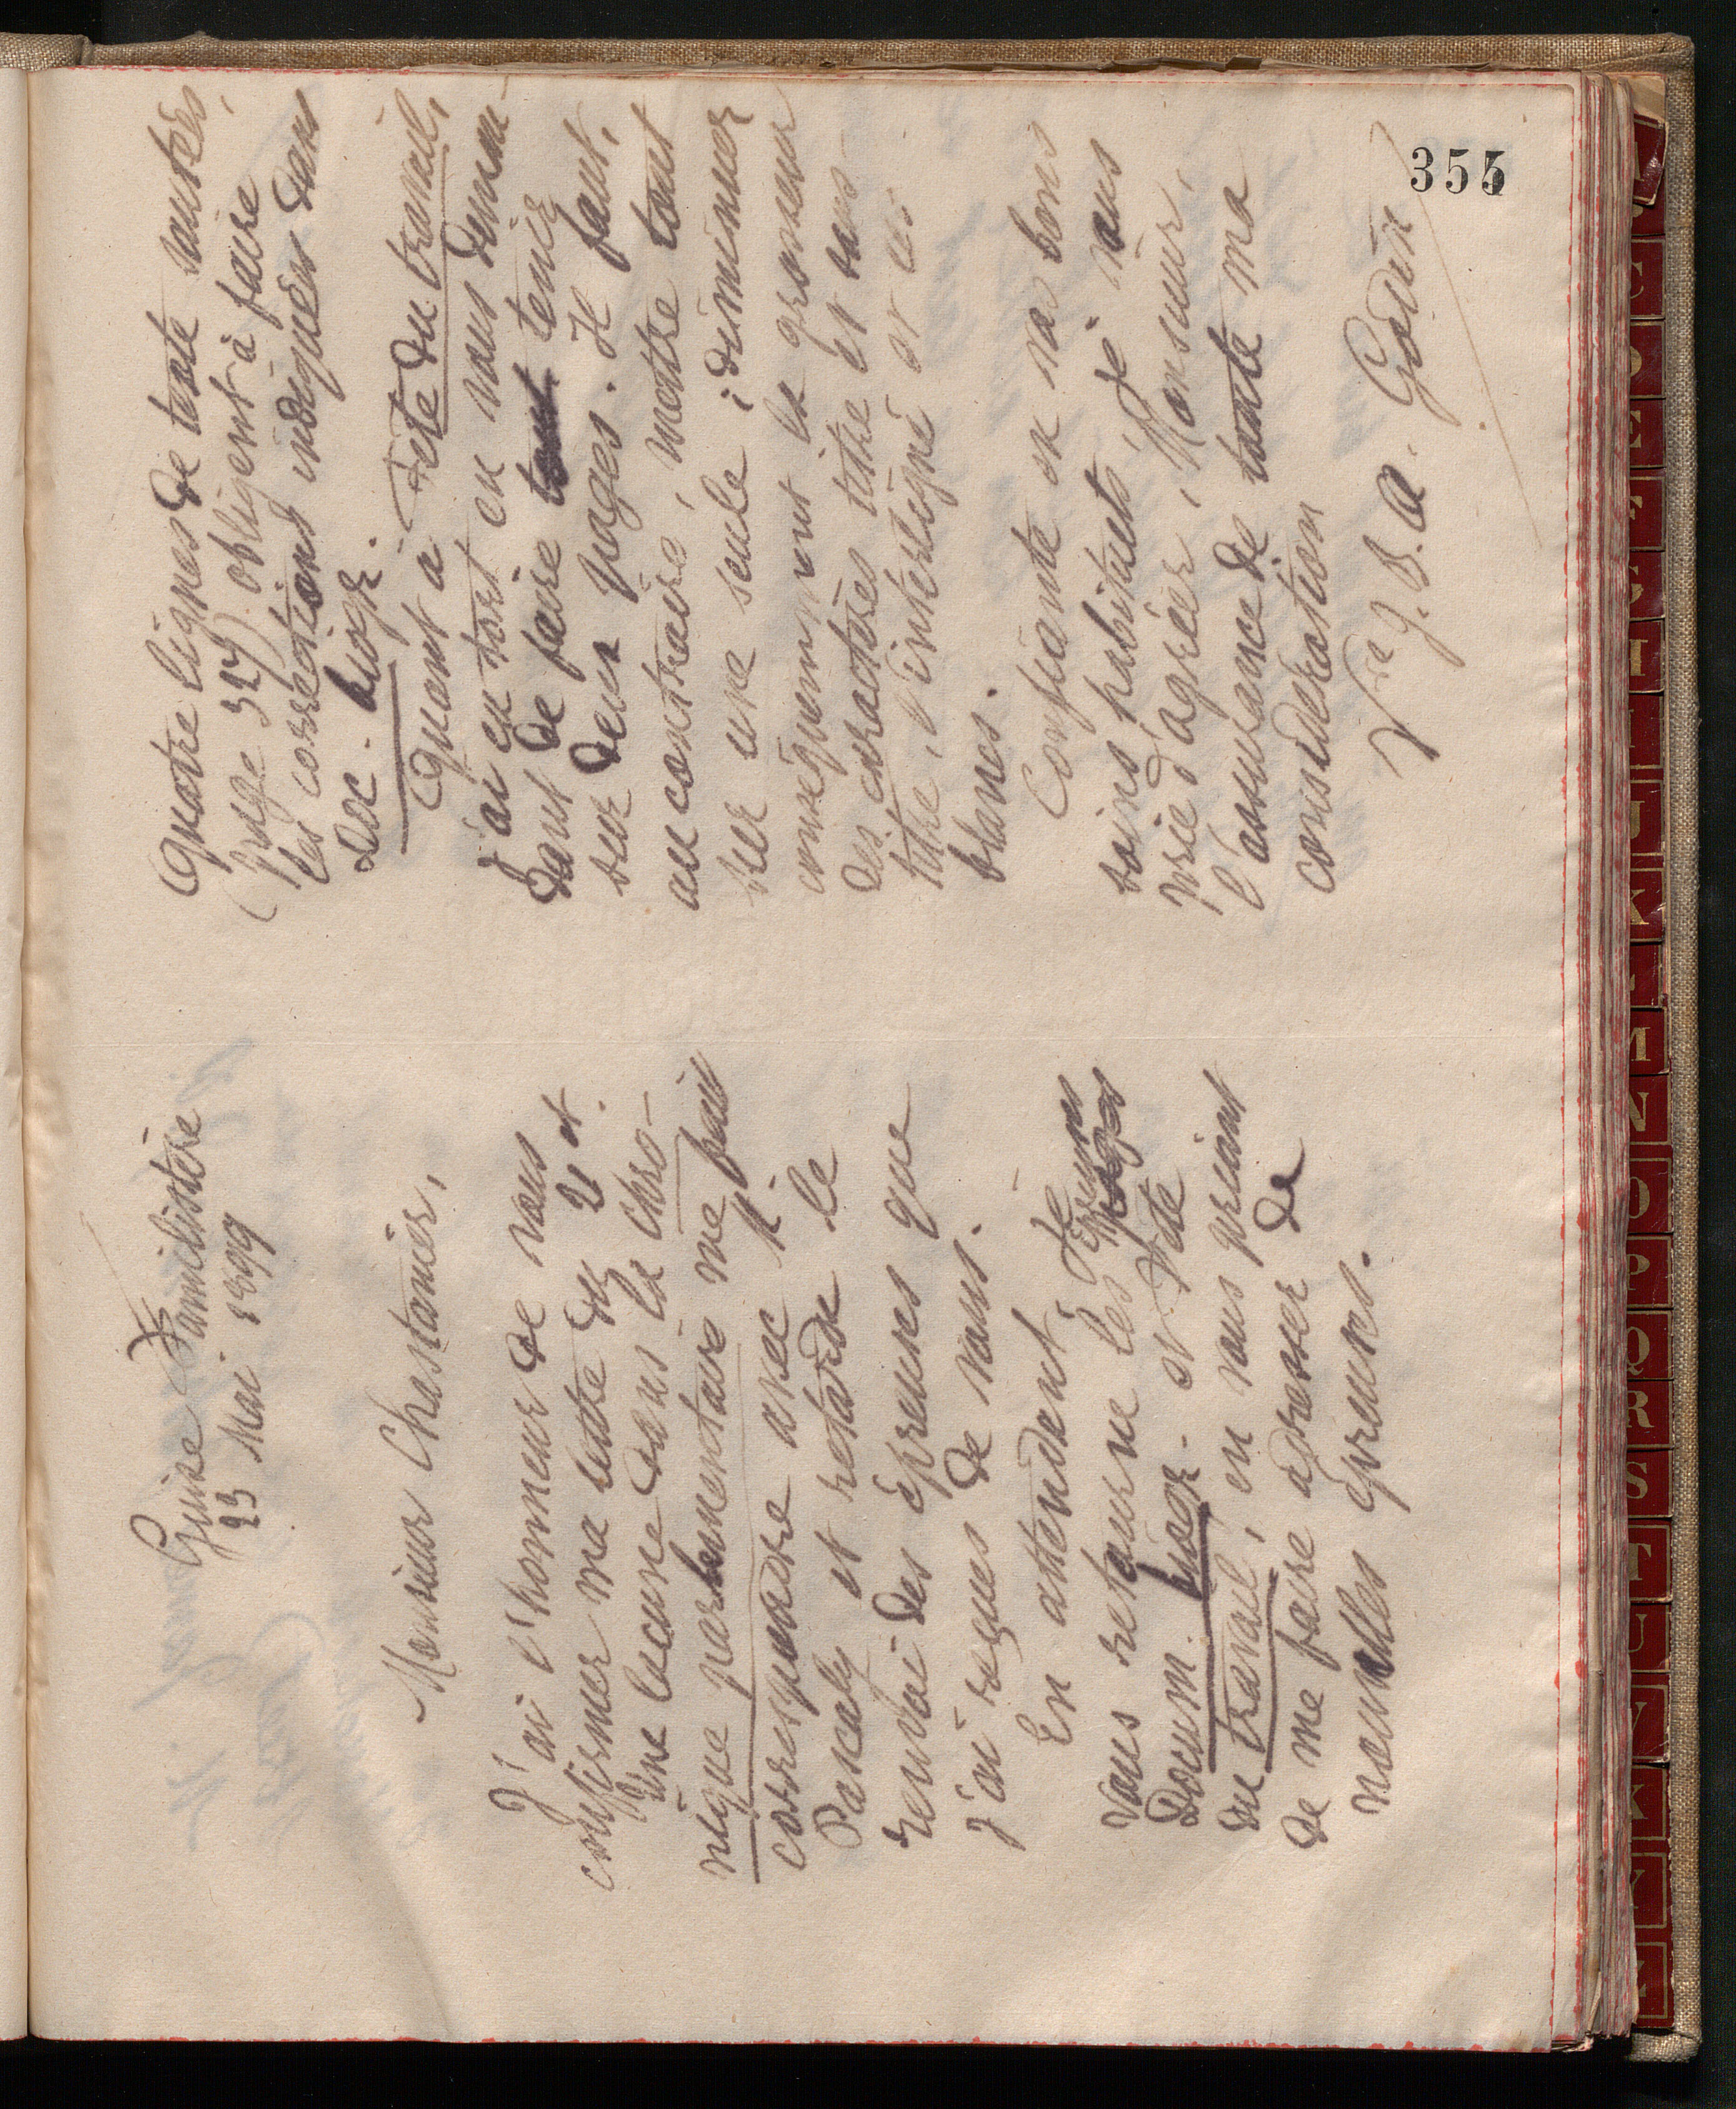 Guise Familistère
23 Mai 1899
Monsieur Chastanier,
J'ai l'honneur de vous
confirmer ma lettre du 21 ct.
Une lacune dans la Chro-
nique parlementaire me fait
correspondre avec M. le
Pascaly et retarde le
renvoi des épreuves que
j'ai reçues de vous.
En attendant, Je
vous retourne les épreuves
Docum. biogr. et Fête
du travail, en vous priant
de me faire adresser de
nouvelles épreuves.
Quatre lignes de texte sautées,
(page 327) obligent à faire
les corrections indiquées dans
Doc. biogr.
Quant à Fête du travail,
J'ai eu tort en vous deman-
dant de faire tout tenir
sur deux pages. Il faut,
au contraire, mettre tout
sur une seule; diminuer
conséquemment la grosseur
des caractères titre et sous-
titre, l'interligné et les
blancs.
Confiante en vos bons
soins habituels, je vous
prie d'agréer, Monsieur,
l'assurance de toute ma
considération
Vve J. B. A. Godin
355